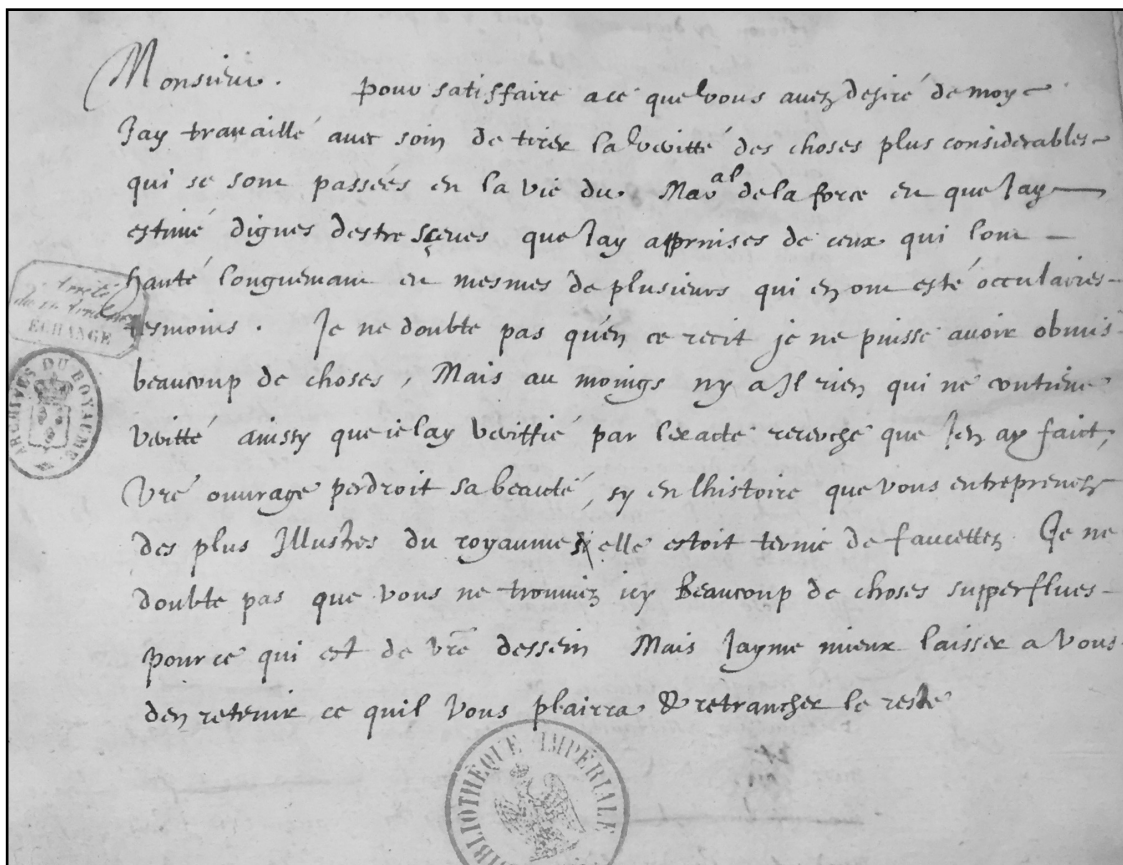 Monsieur. pour satisfaire a ce que vous avez desiré de moy
Jay travaillé avec soin de tirer la veritté des choses plus considerables
qui se sont passées en la vie du Mar^al de la force et que Jay
estimé dignes destre sçeues que Jay apprinses de ceux qui lont
hanté longuemant et mesmes de plusieurs qui en ont esté occulaires
tesmoins. Je ne doubte pas qu'en ce recit je ne puisse avoir obmis
beaucoup de choses, Mais au moings ny a Jl rien qui ne contiene
veritté ainssy que ie lay veriffié par lexacte recerche que Jen ay faict,
Vre ouvrage perdroit sa beauté, sy en lhistoire que vous entreprenez
des plus Jllustres du royaume elle estoit ternie de faucettez Je ne
doubte pas que vous ne trouviez icy Beaucoup de choses supperflues
pour ce qui est de vre dessein Mais Jayme mieux laisser a vous
den retenir ce quil vous plairra & retrancher le reste
ÉCHANGE
ARCHIVES DU ROYAUME
BIBLIOTHÈQUE IMPÉRIALE